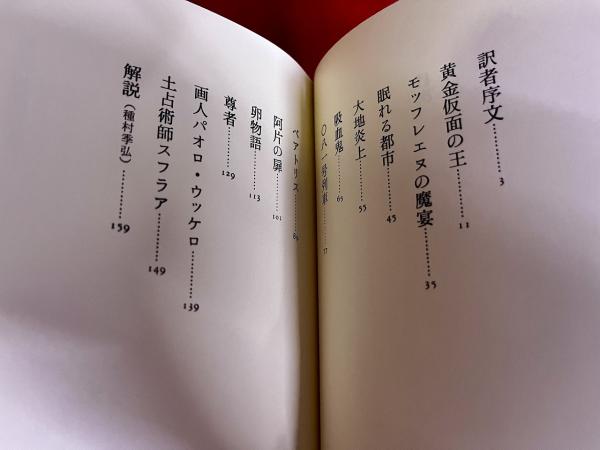 訳者序文………3
黄金仮面の王………11
モッフレエヌの魔宴………35
眠れる都市………45
大地炎上………55
吸血鬼………65
〇八一号列車………77
ベアトリス………89
阿片の扉………101
卵物語………113
尊者………129
画人パオロ・ウッケロ………139
土占術師スフラア………149
解説（種村季弘）………159